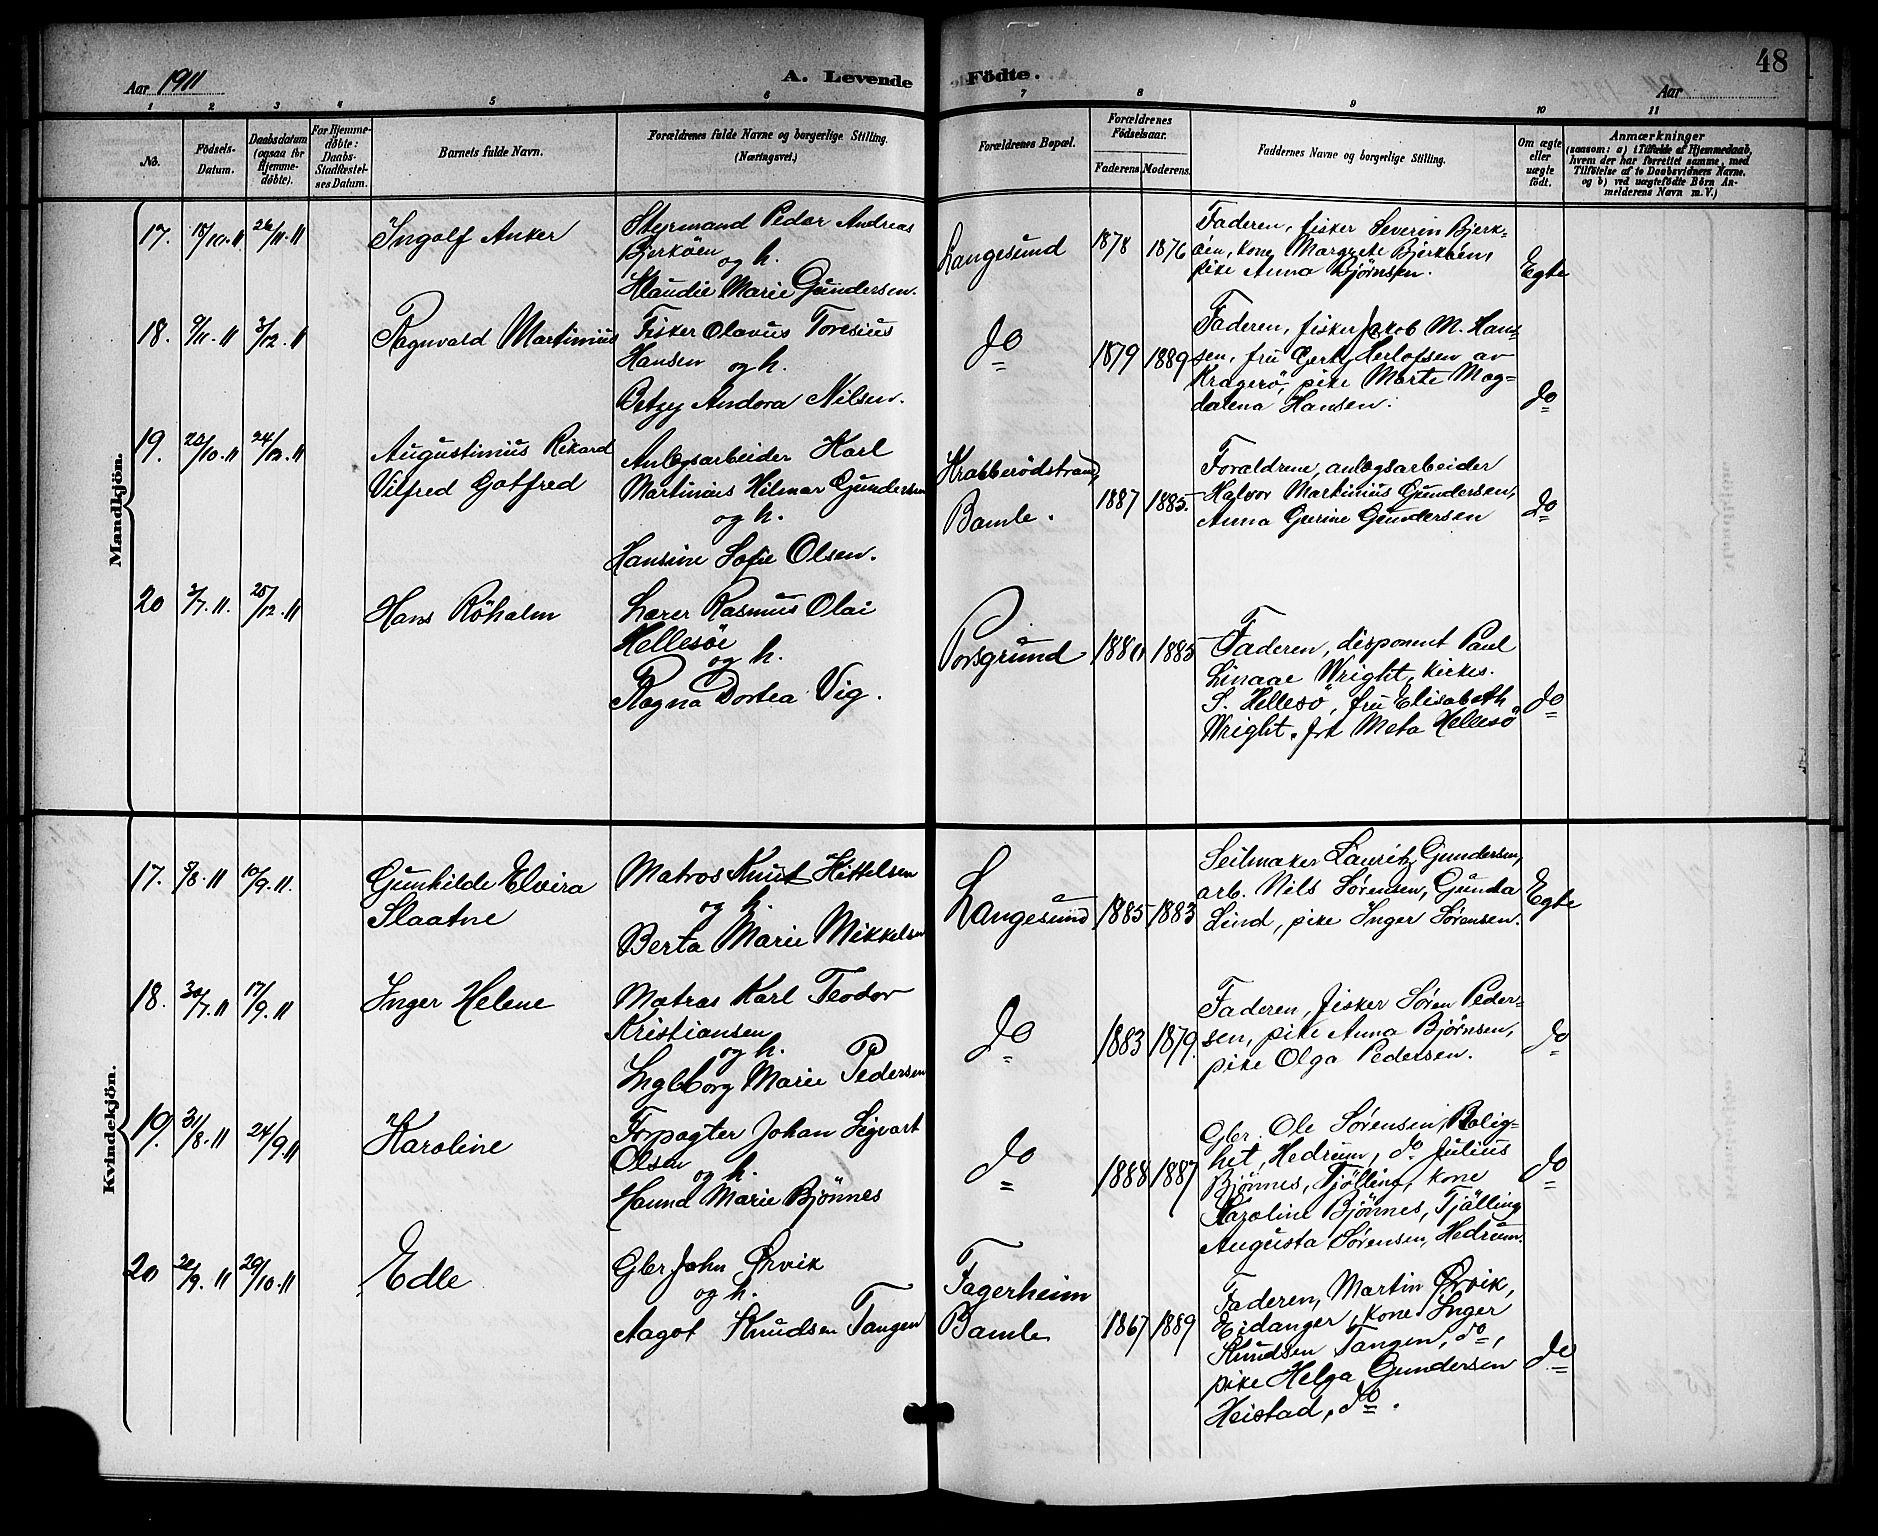 48
Aar 1911
A. Levende Födte.
Aar
1 2 3 4 5 6 7 8 9 10 11
No.
Födsels-
Datum.
Daabsdatum
(ogsaa for
Hjemme-
döbte).
For Hjemme-
döbte:
Daabs-
Stadfæstel-
ses Datum.
Barnets fulde Navn.
Forældrenes fulde Navne og borgerlige Stilling.
(Næringsvei.)
Forældrenes Bopæl.
Forældrenes
Födselsaar.
Faderens Moderens.
Faddernes Navne og borgerlige Stilling.
Om ægte
eller
uægte
födt.
Anmærkninger
(saasom: a) i Tilfælde af Hjemmedaab,
hvem der har forrettet samme, med
Tilföielse af to Daabsvidners Navne,
og b) ved uægtefödte Börn An-
melderens Navn m. V.)
Mandkjön.
17. 18/10.11 26/11.11
Ingolf Anker
Styrmand Peder Andreas
Bjerköen
og h.
Klaudie Marie Gundersen.
Langesund
1878 1876
Faderen, fisker Severin Bjerk-
öen, kone Margrete Bjerköen,
pike Anna Bjørnsen.
Egte
18. 9/11.11 3/12.11
Ragnvald Martinius
Fisker Olavus Toresius
Hansen og h.
Betzy Andora Nilsen.
do
1879 1889
Faderen, fisker Jakob M. Han-
sen, fru Herlofsen av
Kragerö, pike Marte Mag-
dalena Hansen.
do
19. /10.11 24/12.11
Augustinius Rikard
Vilfred Gotfred
Anlægsarbeider Karl
Martinius Hilmar Gundersen
og h.
Hansine Sofie Olsen.
Krabberödstrand,
Bamle.
1887 1885.
Forældrene, anlægsarbeider
Halvor Martinius Gundersen,
Anna Gurine Gundersen
do
20 2/7.11. 25/12.11
Hans Röholm
Lærer Rasmus Olai
Hellesöe
og h.
Ragna Dortea Vig.
Porsgrund
1885
Faderen, disponent Paul
Linaae Wright, kirkes.
S. Hellesö, fru Elisabeth
Wright, frk Meta Hellesö
do
Kvindekjön.
17. /8.11 10/9.11.
Gunhilde Elvira
Slaatne
Matros Knut Kittelsen
og h.
Berta Marie Mikkelsen
Langesund
1885 1883
Seilmaker Lauritz Gundersen,
arb. Nils Sørensen, Gunda
Lind, pike Inger Sørensen.
Egte
18. 30/7.11 17/9.11
Inger Helene
Matros Karl Teodor
Kristiansen
og h.
Ingeborg Marie Pedersen
do
1883 1879.
Faderen, fisker Sören Peder-
sen, pike Anna Bjørnsen,
pike Olga Pedersen.
do
19. 31/8.11 24/9.11
Karoline
Forpagter Johan Sigvart
Olsen
og h.
Marie Bjönnes
do
1888 1887
Gbr. Ole Sørensen, Rolig-
het, Hedrum, do Julius
Bjönnes, Tjölling, kone
Karoline Bjönnes, Tjölling
Augusta Sørensen, Hedrum.
do
20 /9.11 29/10.11
Edle
Gbr John Ørvik
og h.
Aagot Knudsen Tangen
Fagerheim
Bamle
1867 1889
Faderen, Martin Ørvik,
Eidanger, kone Inger
Knudsen Tangen, do,
pike Helga Gundersen
Heistad, do.
do